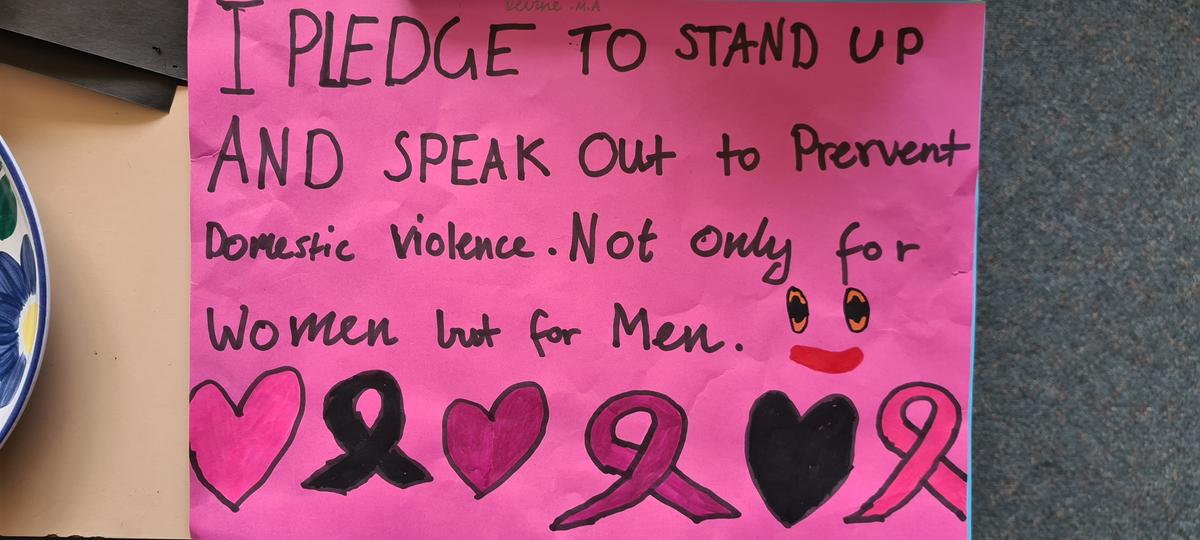 I PLEDGE TO STAND UP
AND SPEAK Out to Prervent
Domestic violence. Not only for
Women but for Men.